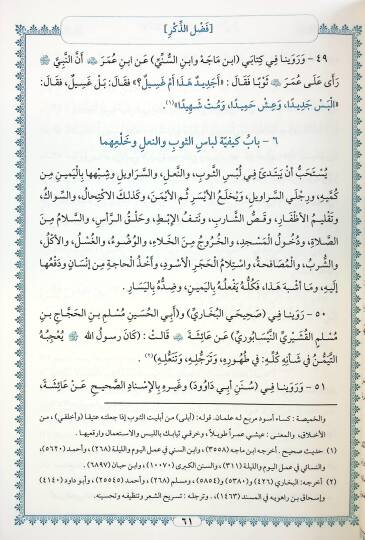 [فَضْلُ الذِّكْرِ]
٤٩ - وَرَوَيْنَا فِي كِتَابَيِ (ابْنِ مَاجَهْ وَابْنِ السُّنِّيِّ) عَنِ ابْنِ عُمَرَ ﷺ أَنَّ النَّبِيَّ ﷺ
رَأَى عَلَى عُمَرَ ثَوْبًا فَقَالَ: «أَجَدِيدٌ هَذَا أَمْ غَسِيلٌ؟» فقَالَ: بَلْ غَسِيلٌ، فقَالَ:
«الْبَسْ جَدِيدًا، وَعِشْ حَمِيدًا، وَمُتْ شَهِيدًا»(١).
٦ - بابُ كيفيّة لباسِ الثوبِ والنعلِ وخَلْعِهما
يُسْتَحَبُّ أَنْ يَبْتَدِئَ فِي لُبْسِ الثَّوْبِ، والنَّعْلِ، والسَّرَاوِيلِ وشِبْهِها بِالْيَمينِ مِن
كُمَّيهِ، ورِجْلَيِ السَّراويلِ، ويَخْلَعُ الأيْسَرَ ثُم الأيْمَنَ، وَكذلكَ الاكْتِحَالُ، والسِّواكُ،
وَتَقْلِيمُ الأظْفَارِ، وقَصُّ الشَّارِبِ، ونَتفُ الإبْطِ، وحَلْقُ الرَّأْسِ، والسَّلامُ مِنَ
الصَّلاةِ، ودُخُولُ المَسْجِدِ، والخُرُوجُ مِنَ الخَلاءِ، والوُضُوءُ، والغُسْلُ، والأكْلُ،
والشُّربُ، والمُصَافحَةُ، واسْتِلامُ الحَجَرِ الأسْوَدِ، وأخْذُ الحاجَةِ مِن إنْسَانٍ ودَفْعُها
إلَيهِ، ومَا أشْبَهَ هَذا، فَكُلُّهُ يَفْعَلُهُ باليَمينِ، وضِدُّهُ باليَسَارِ.
٥٠ - وَرَوَينا فِي (صَحِيحَيِ البُخَارِيِّ) و(أَبي الحُسَينِ مُسْلِمِ بنِ الحَجَّاجِ بنِ
مُسْلِمٍ القُشَيْرِيِّ النَّيْسَابُورِيِّ) عَن عَائِشَةَ قَالتْ: (كَانَ رسولُ الله ﷺ يُعْجِبُهُ
التَّيَمُّنُ فِي شَأْنِهِ كُلِّهِ: فِي طُهُورِهِ، وَتَرَجُّلِهِ، وَتَنَعُّلِهِ)(٢).
٥١ - وَرَوَينا فِي (سُنَنِ أَبي دَاوُودَ) وغَيرِهِ بِالإسْنادِ الصَّحيحِ عَنْ عَائِشَةَ،
والخميصة: كساء أسود مربع له علمان. قوله: (أبلي) من أبليت الثوب إذا جعلته عتيقا (وأخلفي)، من
الأخلاق، والمعنى: عيشي عمراً طويلاً، وخرقي ثيابك باللبس والاستعمال وارقعيها.
(١) حديث صحيح. أخرجه ابن ماجه (٣٥٥٨)، وابن السني في عمل اليوم والليلة (٢٦٨)، وأحمد (٥٦٢٠)،
والنسائي في عمل اليوم والليلة (٣١١)، والسنن الكبرى (١٠٠٧٠)، وابن حبان (٦٨٩٧).
(٢) أخرجه: البخاري (٤٢٦) و(٥٣٨٠) و(٥٨٥٤)، ومسلم (٢٦٨)، وأحمد (٢٥٥٤٥)، وأبو داود (٤١٤٠)
وإسحاق بن راهويه في المسند (١٤٦٣). وترجله: تسريح الشعر وتنظيفه وتحسينه.
٦١